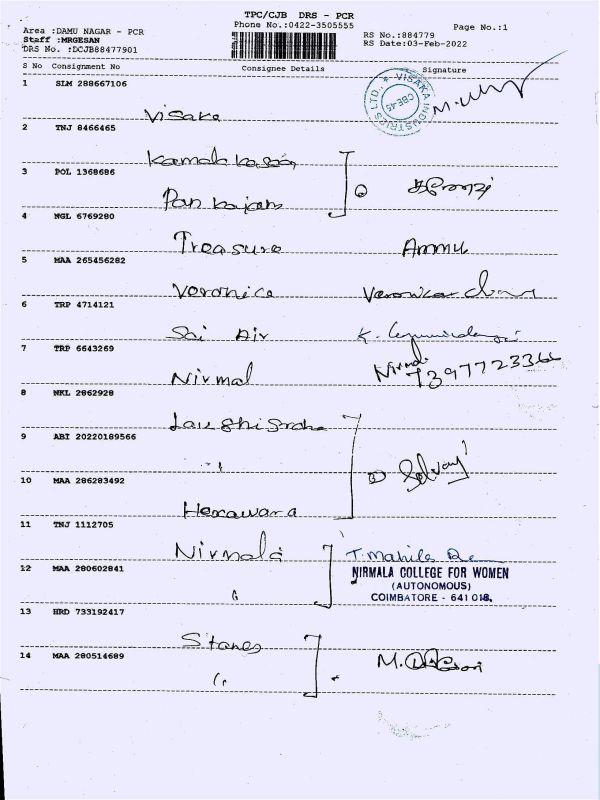 TPC/CJB DRS - PCR
Phone No.:0422-3505555
Page No.:1
Area :DAMU NAGAR - PCR
Staff :MRGESAN
DRS No. :DCJB88477901
RS No.:884779
RS Date:03-Feb-2022
S No Consignment No Consignee Details Signature
1 SLM 288667106
VISAKA INDUSTRIES LTD., CBE-45
Visaka
2 TNJ 8466465
3 POL 1368686
Pankajam
4 NGL 6769280
Treasure Ammu
5 MAA 265456282
Veronica
6 TRP 4714121
Sai Air
7 TRP 6643269
Nirmal Nirmal
7397723366
8 NKL 2862928
9 ABI 20220189566
"
10 MAA 286283492 Selvaraj
11 TNJ 1112705
Nirmala
12 MAA 280602841
NIRMALA COLLEGE FOR WOMEN
(AUTONOMOUS)
COIMBATORE - 641 018.
"
13 HRD 733192417
Stanes
14 MAA 280514689
"